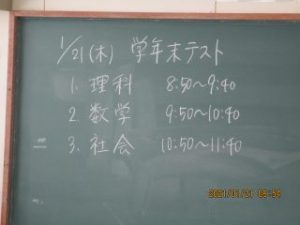 1/21(木) 学年末テスト
1. 理科 8:50～9:40
2. 数学 9:50～10:40
3. 社会 10:50～11:40